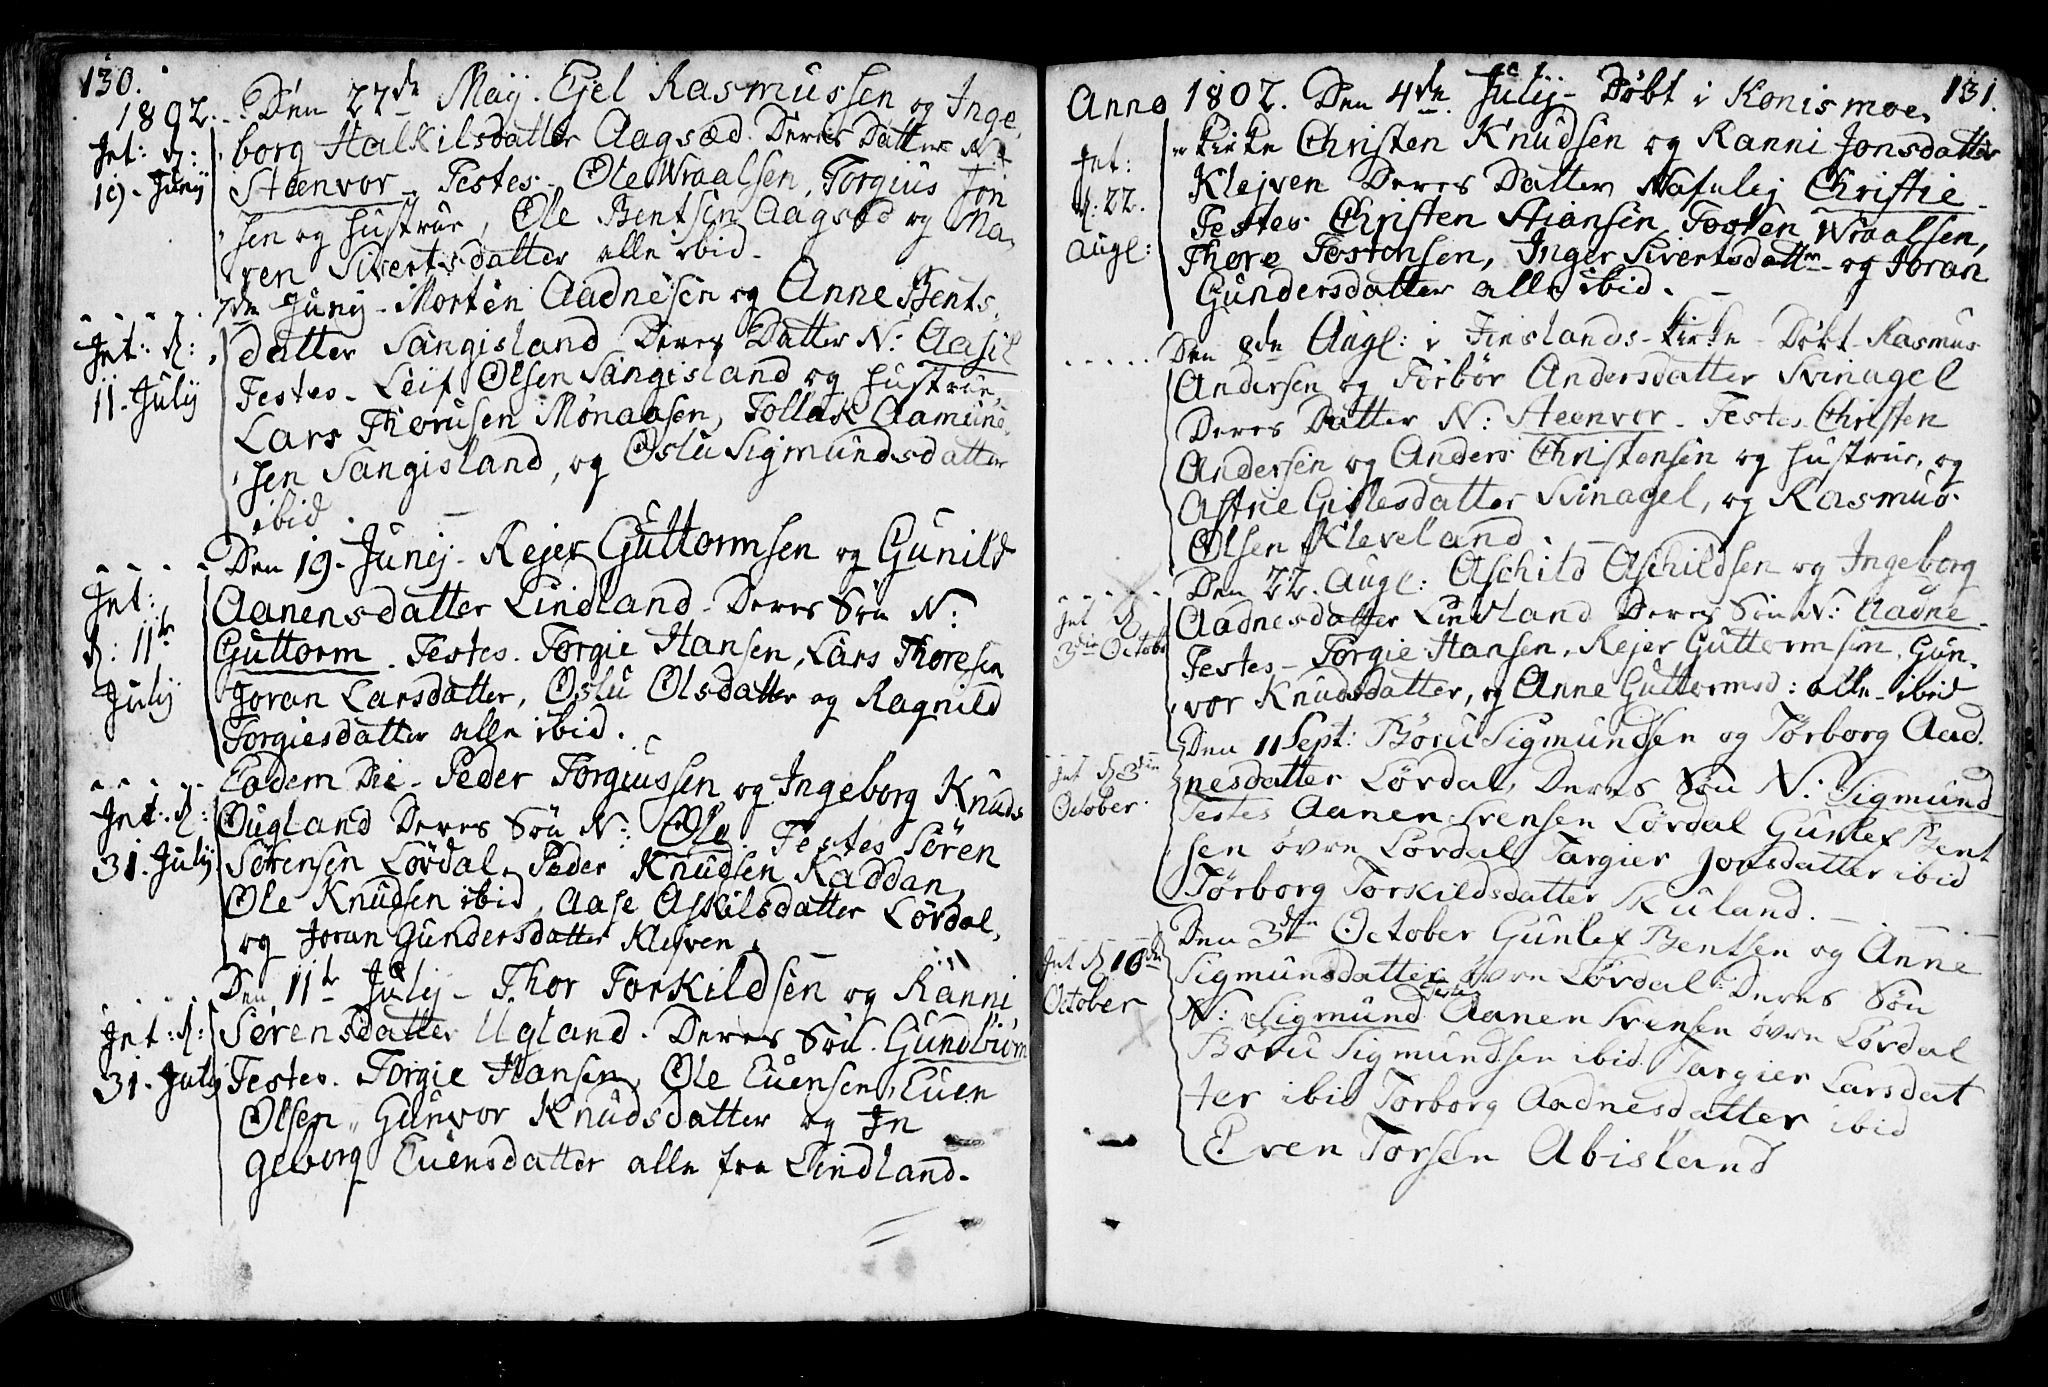 130.
1802. Den 27de Maÿ. Ejel Rasmussen og Inge
borg Halkilsdatter Aagsæd. Deres Datter N:
Int: d:
19. Juny
Steenvor. Testes. Ole Wraalsen, Torgius Jon
sen og hustrue, Ole Bentsen Aagsæd og Ma
ren Sivertsdatter alle ibid.
7de Junij. Morten Aadnesen og Anne Bents
Int: d:
11. Julij
datter Sangisland Deres Datter N: Aasil
Testes. Leif Olsen Sangisland og hustrue,
Lars Thorusen Monaasen, Tollak Aamun
sen Sangisland, og Oslu Sigmundsdatter
ibid.
Den 19. Junij. Rejer Guttormsen og Gunild
Int:
d: 11te
Julij
Aanensdatter Lindland. Deres Søn N:
Guttorm. Testes. Torgie Hansen, Lars Thoresen
Joran Larsdatter, Oslu Olsdatter og Ragnild
Torgiesdatter alle ibid.
Eodem Die. Peder Torgiussen og Ingeborg Knuds
Int: d:
31. Julij
Ougland Deres Søn N: Ole. Testes Sören
Sørensen Lövdal, Peder Knudsen Kaddan,
Ole Knudsen ibid, Aase Askilsdatter Lövdal,
og Joran Gundersdatter Klejven.
Den 11te Julij. Thor Torkildsen og Ranni
Int: d:
31. July
Sørensdatter Ugland. Deres Søn. Gundbiörn
Testes. Torgie Hansen, Ole Euensen, Euen
Olsen, Gunvor Knudsdatter og In
geborg Euensdatter alle fra Lindland.
131.
Anno 1802. Den 4de Julij. Döbt i Konismoe
Int:
d: 22.
Augl:
kirke Christen Knudsen og Ranni Jonsdatter
Klejven Deres Datter Nafnlej Christie
Testes Christen Stiansen, Tosten Wraalsen,
Thore Tostensen, Inger Sivertsdattr og Joran
Gundersdatter alle ibid.
Den 8de Augl: i Finslands kirke Döbt Rasmus
Andersen og Torbör Andersdatter Svinagel
Deres Datter N: Steenvor. Testes. Christen
Andersen og Anders Christensen og hustrue, og
Astrie Gitlesdatter Svinagel, og Rasmus
Olsen Kleveland.
Den 22. Augl: Aschild Aschildsen og Ingeborg
Int d
3die Octobr
Aadnesdatter Lindland Deres Søn N: Aadne
Testes. Torgie Hansen, Rejer Guttormsen, Gun
vor Knudsdatter, og Anne Guttormsd: alle ibid
Den 11 Sept: Böru Sigmundsen og Törborg Aad
Int d 3die
October.
nesdatter Lövdal, Deres Søn N: Sigmund
Testes Aanen Svensen Lövdal Gunlef Bent
sen övre Lövdal, Targier Jonsdatter ibid
Törborg Torkildsdatter Skuland.
Den 3die October Gunlef Bentsen og Anne
Int d 10de
October
Sigmunsdatter övre Lövdal Deres Søn
N: Sigmund Testes Aanen Svensen övre Lövdal
Böru Sigmundsen ibid. Targier Larsdat
ter ibid Torborg Aadnesdatter ibid
Even Torsen Abisland